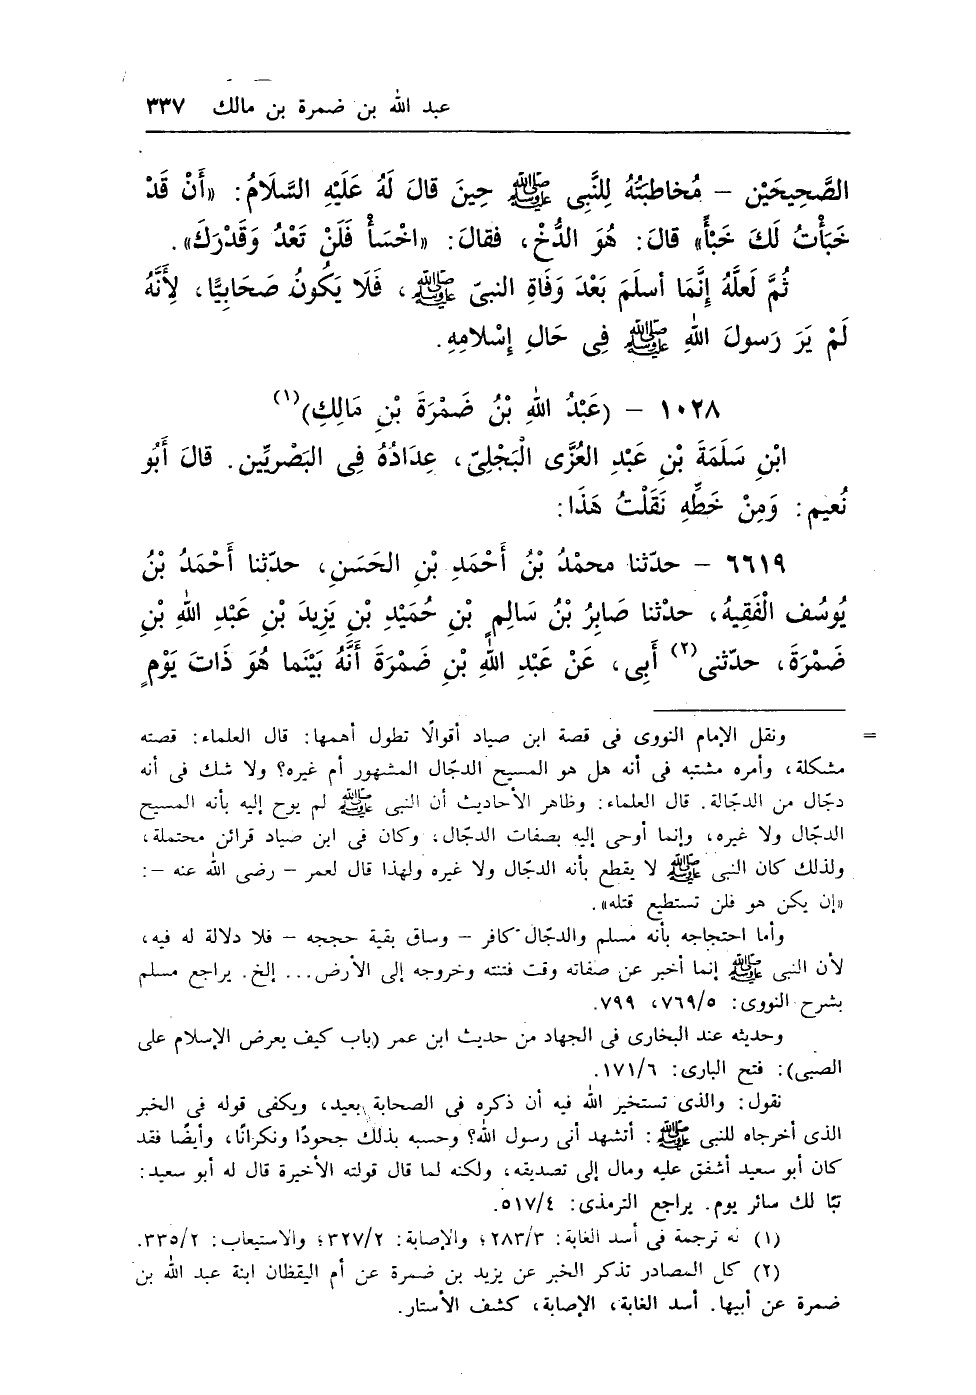 عبد الله بن ضمرة بن مالك ٣٣٧
الصَّحِيحَيْن – مُخاطبَتُهُ لِلنَّبِى ﷺ حِينَ قالَ لَهُ عَلَيْهِ السَّلَامُ: «أَنْ قَدْ
خَبَأْتُ لَكَ خَبْأً» قالَ: هُوَ الدُّخْ، فقالَ: «اخْسَأْ فَلَنْ تَعْدُ وَقَدْرَكَ».
ثُمَّ لَعلَّهُ إنَّمَا أسلَمَ بَعْدَ وَفَاةِ النبىّ ﷺ، فَلَا يَكُونُ صَحَابِيًّا، لِأَنَّهُ
لَمْ يَرَ رَسولَ اللهِ ﷺ فِى حَالِ إسْلامِهِ.
١٠٢٨ – (عَبْدُ اللهِ بْنُ ضَمْرَةَ بْنِ مَالِكِ)(١)
ابْنِ سَلَمَةَ بْنِ عَبْدِ العُزَّى الْبَجْلِىّ، عِدَادُهُ فِى البَصْرِيِّين. قالَ أَبُو
نُعَيم: وَمِنْ خَطِّهِ نَقَلْتُ هَذَا:
٦٦١٩ – حدّثنا محمْدُ بْنُ أَحْمَدِ بْنِ الحَسَنِ، حدّثنا أَحْمَدُ بْنُ
يُوسُف الْفَقِيهُ، حدْثنا صَابِرُ بْنُ سَالِمٍ بْنِ حُمَيْدِ بْنِ يَزِيدَ بْنِ عَبْدِ اللهِ بْنِ
ضَمْرَةَ، حدّثنى(٢) أَبِى، عَنْ عَبْدِ اللهِ بْنِ ضَمْرَةَ أَنَّهُ بَيْنَما هُوَ ذَاتَ يَوْمٍ
= ونقل الإمام النووى فى قصة ابن صياد أقوالًا تطول أهمها: قال العلماء: قصته
مشكلة، وأمره مشتبه فى أنه هل هو المسيح الدجّال المشهور أم غيره؟ ولا شك فى أنه
دجّال من الدجّالة. قال العلماء: وظاهر الأحاديث أن النبى ﷺ لم يوح إليه بأنه المسيح
الدجّال ولا غيره، وإنما أوحى إليه بصفات الدجّال، وكان فى ابن صياد قرائن محتملة،
ولذلك كان النبى ﷺ لا يقطع بأنه الدجّال ولا غيره ولهذا قال لعمر – رضى الله عنه –:
«إن يكن هو فلن تستطيع قتله».
وأما احتجاجه بأنه مسلم والدجّال كافر – وساق بقية حججه – فلا دلالة له فيه،
لأن النبى ﷺ إنما أخبر عن صفاته وقت فتنته وخروجه إلى الأرض... إلخ. يراجع مسلم
بشرح النووى: ٧٦٩/٥، ٧٩٩.
وحديثه عند البخارى فى الجهاد من حديث ابن عمر (باب كيف يعرض الإسلام على
الصبى): فتح البارى: ١٧١/٦.
نقول: والذى تستخير الله فيه أن ذكره فى الصحابة بعيد، ويكفى قوله فى الخبر
الذى أخرجاه للنبى ﷺ: أتشهد أنى رسول الله؟ وحسبه بذلك جحودًا ونكرانًا، وأيضًا فقد
كان أبو سعيد أشفق عليه ومال إلى تصديقه، ولكنه لما قال قولته الأخيرة قال له أبو سعيد:
تبًا لك سائر يوم. يراجع الترمذى: ٥١٧/٤.
(١) له ترجمة فى أسد الغابة: ٢٨٣/٣؛ والإصابة: ٣٢٧/٢؛ والاستيعاب: ٣٣٥/٢.
(٢) كل المصادر تذكر الخبر عن يزيد بن ضمرة عن أم اليقظان ابنة عبد الله بن
ضمرة عن أبيها. أسد الغابة، الإصابة، كشف الأستار.